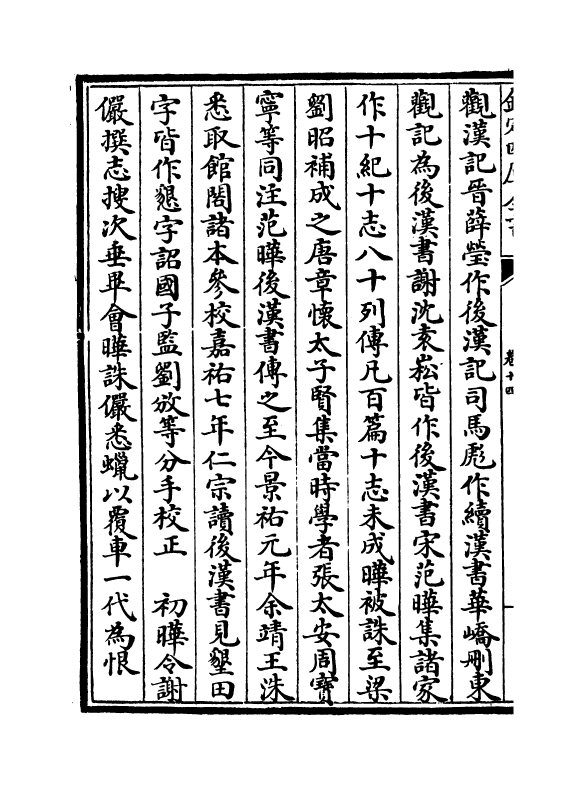 欽定四庫全書
卷十四
觀漢記晉薛瑩作後漢記司馬彪作續漢書華嶠刪東
觀記為後漢書謝沈袁崧皆作後漢書宋范曄集諸家
作十紀十志八十列傳凡百篇十志未成曄被誅至梁
劉昭補成之唐章懷太子賢集當時學者張太安周寶
寧等同注范曄後漢書傳之至今景祐元年余靖王洙
悉取館閣諸本參校嘉祐七年仁宗讀後漢書見墾田
字皆作懇字詔國子監劉攽等分手校正　初曄令謝
儼撰志搜次垂畢會曄誅儼悉蠟以覆車一代為恨